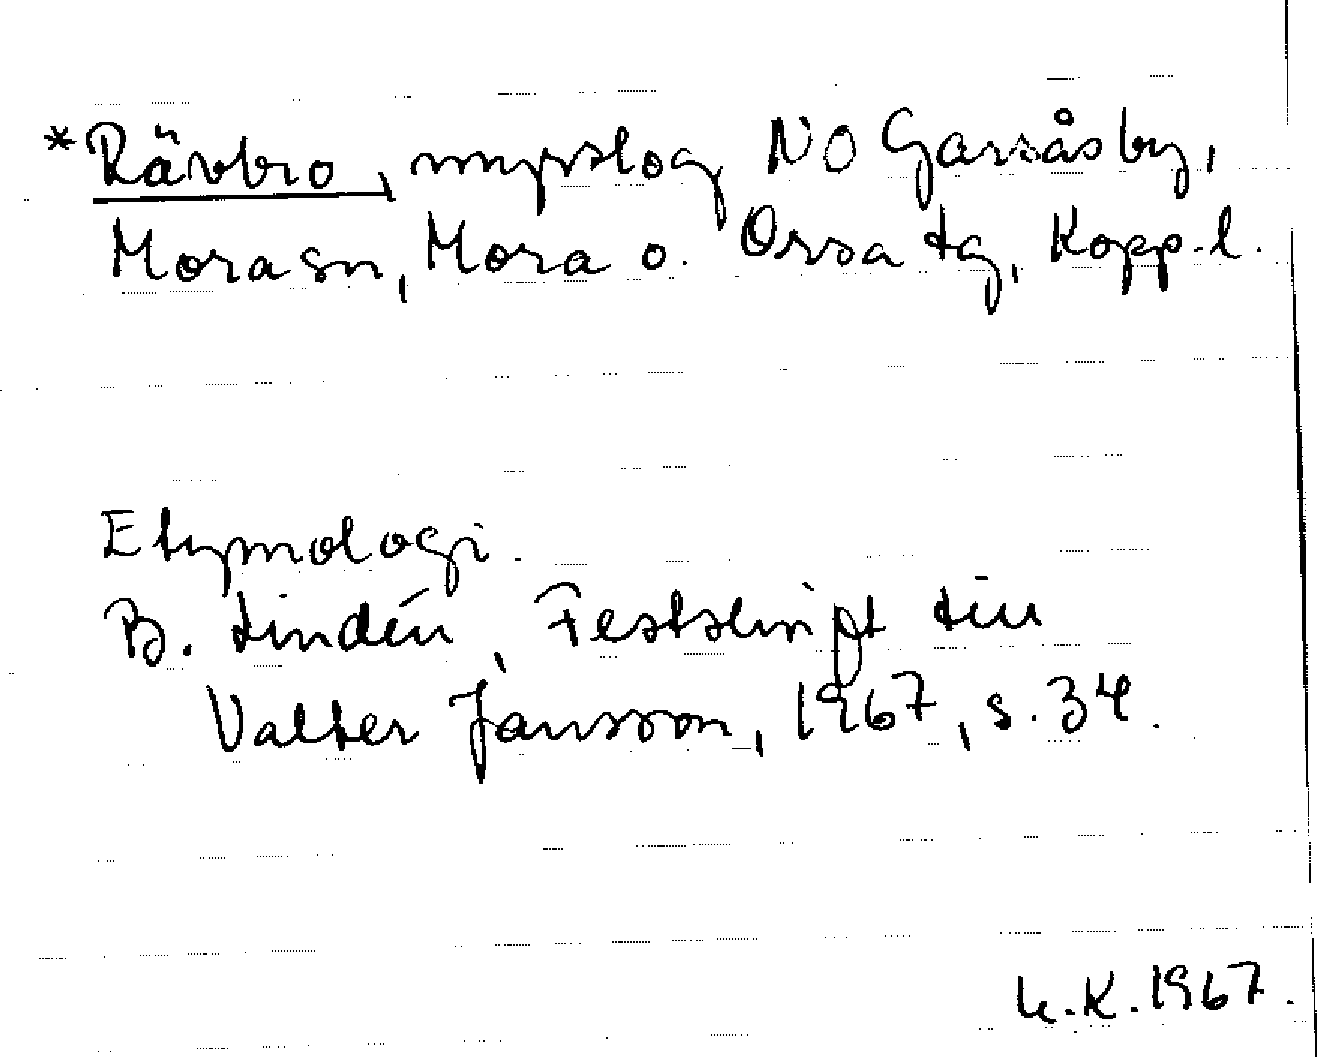 *Rävbro, myrslog NO Garsås by,
Mora sn, Mora o. Orsa tg, Kopp. l.
Etymologi.
B. Lindén, Festskrift till
Valter Jansson, 1967, s. 34.
K. 1967.